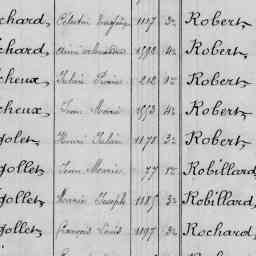 chard, Célestin 1117 3e Robert,
chard, 1592 4e Robert,
cheux, Julien 212 1e Robert,
cheux, Jean Marie 1553 4e Robert,
golet, Henri Julien 1178 3e Robert,
gollet, Jean Marie 77 1e Robillard,
gollet, Marie Joseph 1187 3e Robillard,
gollet, François Louis 1197 3e Rochard,